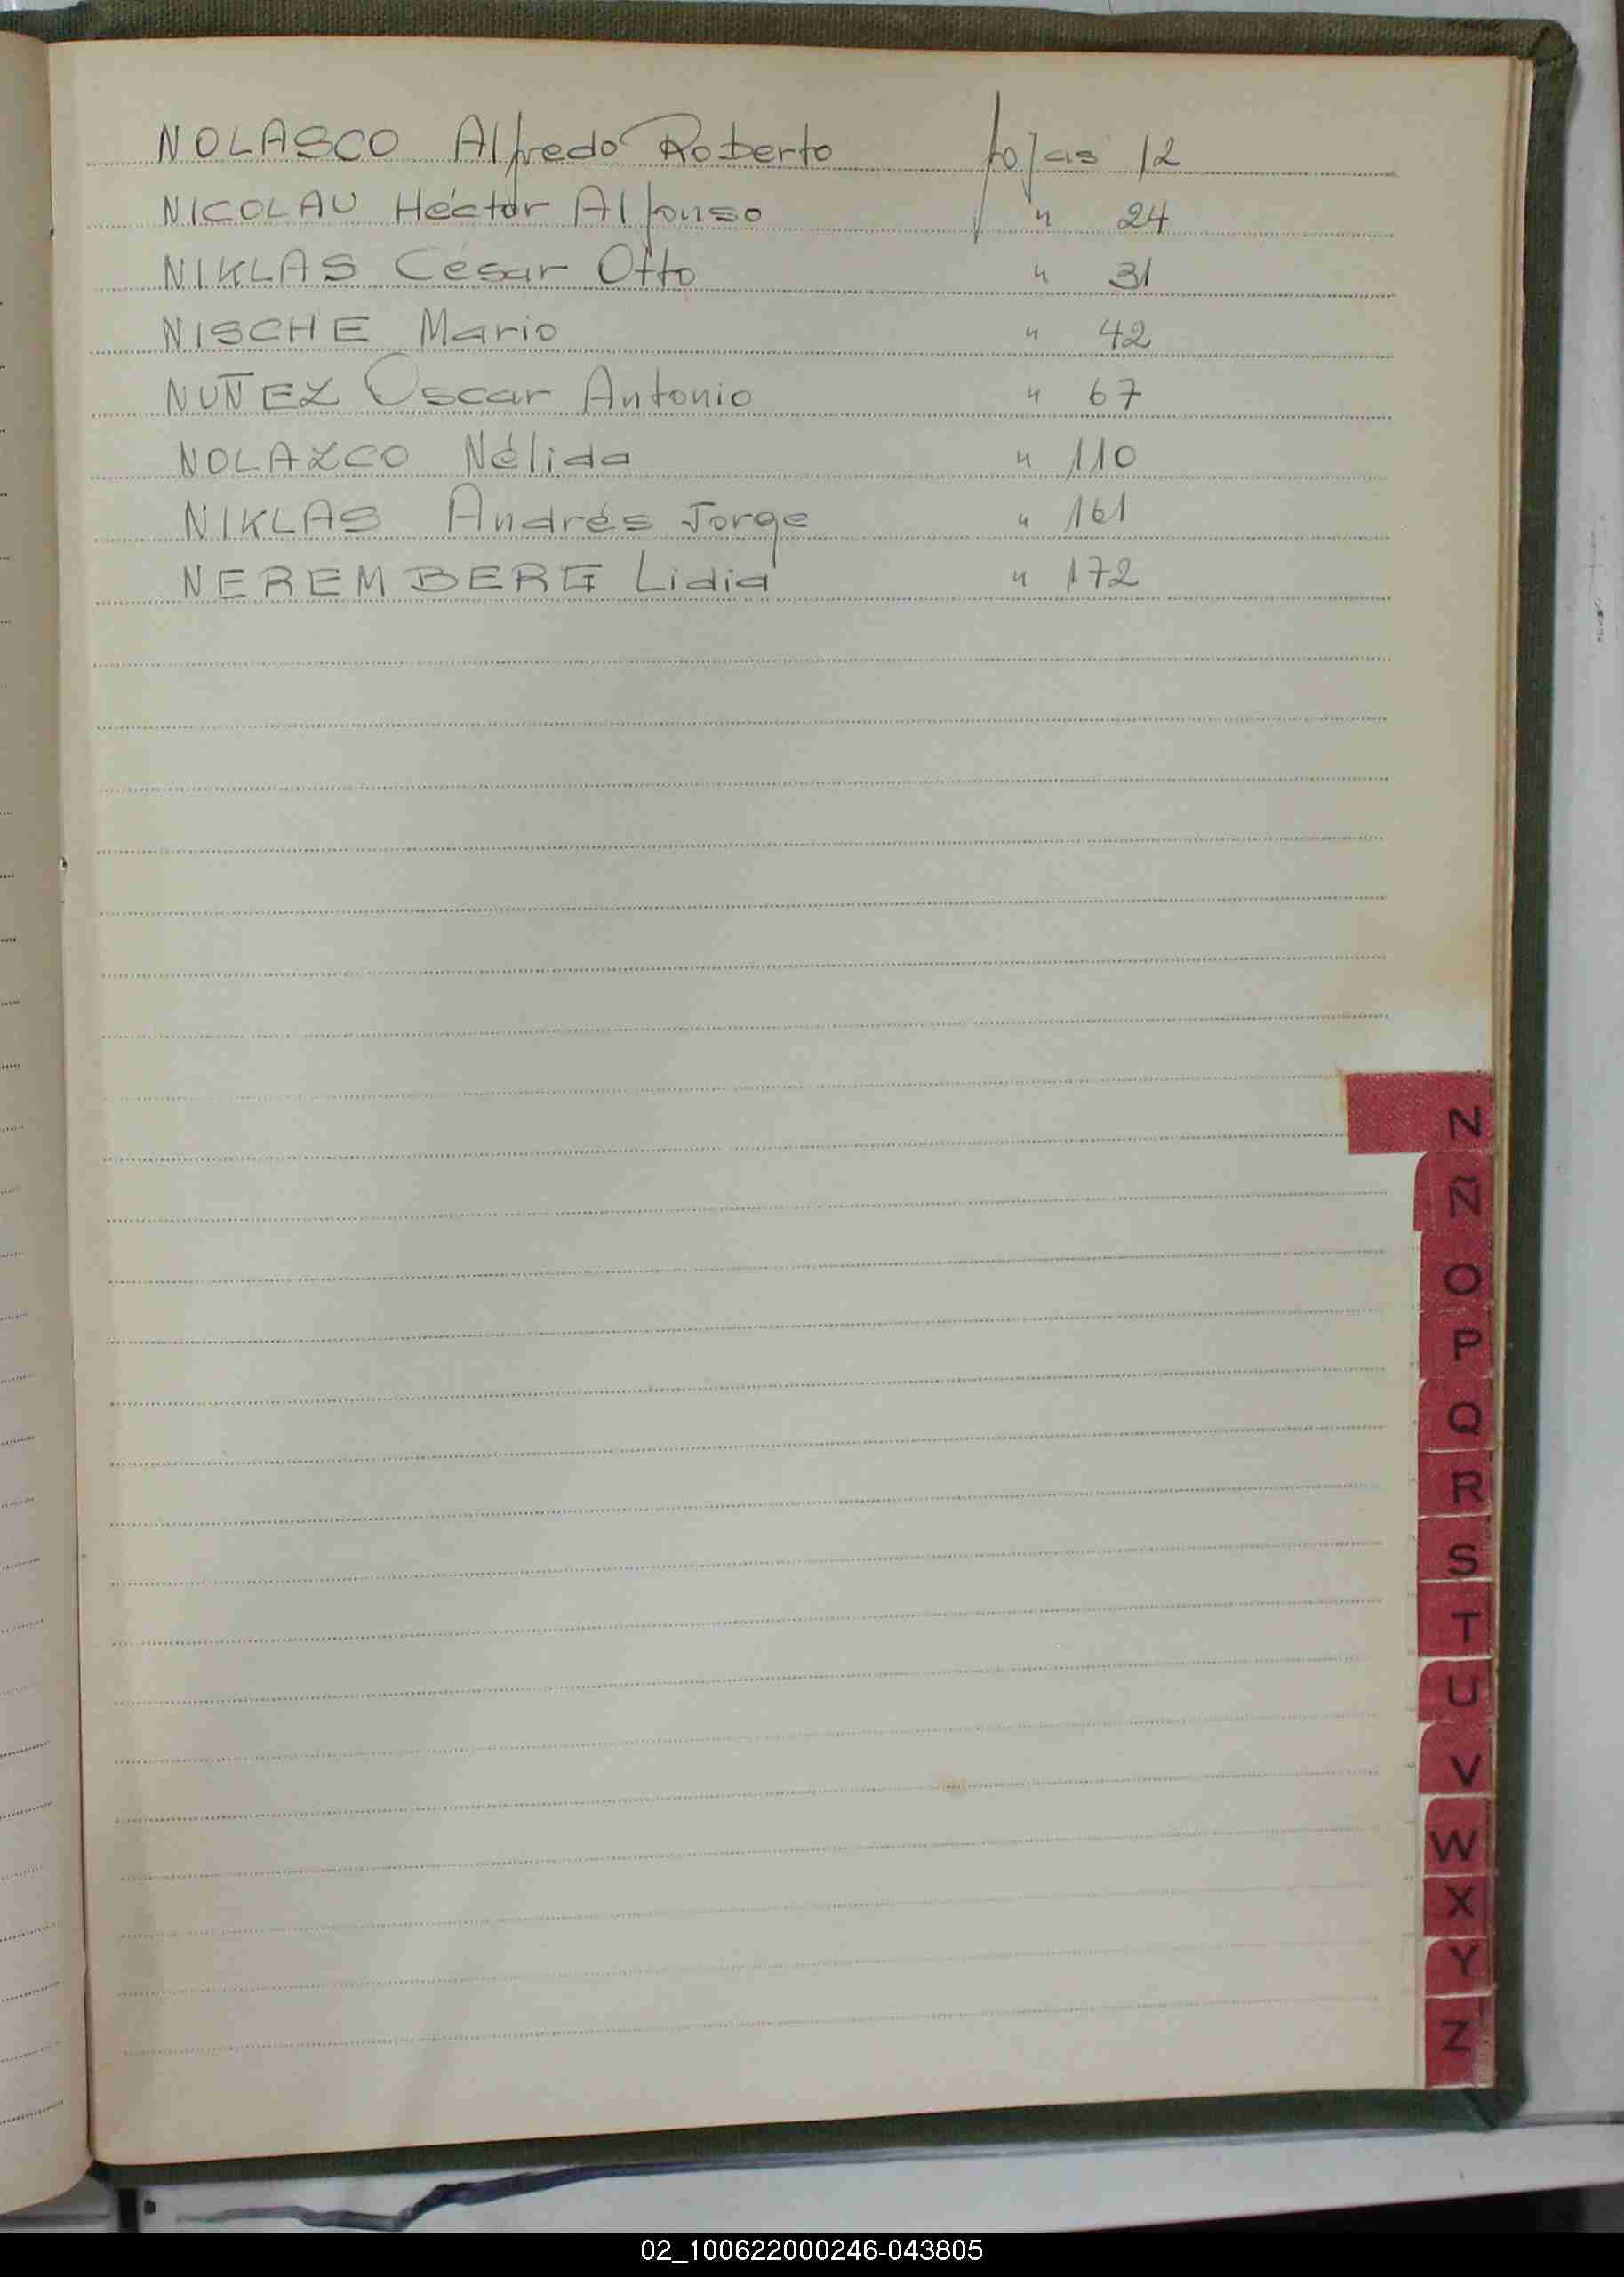 NOLASCO Alfredo Roberto fojas 12
NICOLAU Héctor Alfonso " 24
NIKLAS César Otto " 31
NISCHE Mario " 42
NUÑEZ Oscar Antonio " 67
NOLAZCO Nélida " 110
NIKLAS Andrés Jorge " 161
NEREMBERG Lidia " 172
N
Ñ
O
P
Q
R
S
T
U
V
W
X
Y
Z
02_100622000246-043805